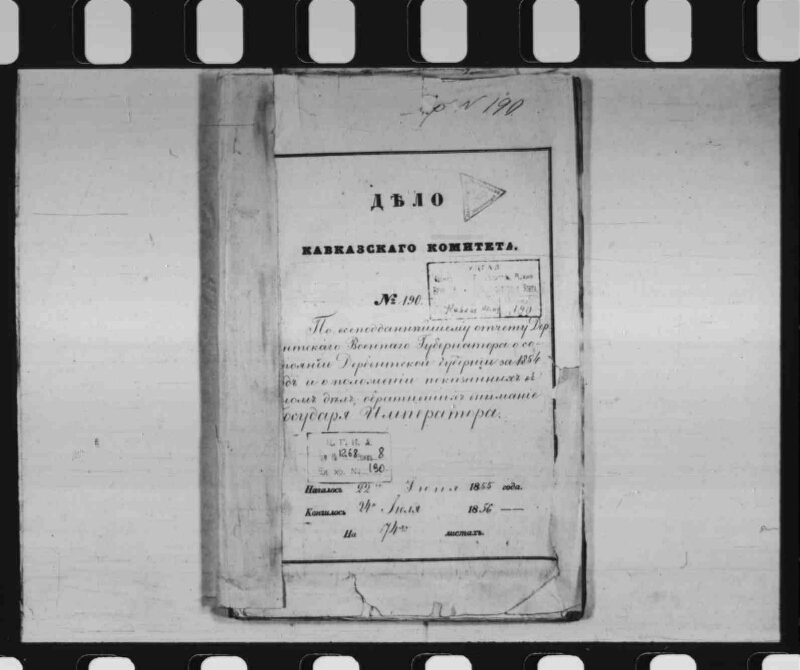 № 190
ДѢЛО
КАВКАЗСКАГО КОМИТЕТА.
№ 190.
По всеподданнѣйшему отчету Дер
нтскаго Военнаго Губернатора о со
тоянiи Дербентской губернiи за 1854
дъ и о положенiи указанныхъ въ
номъ дѣлъ, обратившихъ вниманiе
осударя Императора.
Ц. Г. И. А.
1268 8
190
Началось 22го Iюня 1855 года.
Кончилось 24го Iюля 1856 —
На 74 листахъ.